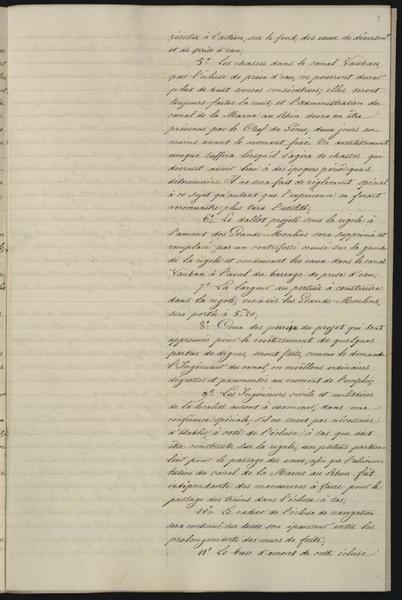 résister à l'action, sur le fond, des eaux de déversemt
et de prise d'eau;
5° Les chasses dans le canal Vauban,
par l'écluse de prise d'eau, ne pourront durer
plus de huit heures consécutives; elles seront
toujours faites la nuit, et l'administration du
canal de la Marne au Rhin devra en être
prévenue par le Chef du Génie, deux jours au
moins avant le moment fixé. Un avertissement
unique suffira lorsqu'il s'agira de chasses qui
devront avoir lieu à des époques périodiques
déterminées. Il ne sera fait de règlement spécial
à ce sujet qu'autant que l'expérience en ferait
reconnaître plus tard l'utilité;
6° Le dallot projeté sous la rigole à
l'amont des Grands-Moulins sera supprimé et
remplacé par un contrefossé creusé sur la gauche
de la rigole et conduisant les eaux dans le canal
Vauban à l'aval du barrage de prise d'eau;
7° La largeur du pertuis à construire
dans la rigole, vis-à-vis les Grands-Moulins,
sera portée à 5,20;
8° Ceux des perrés du projet qui sont
approuvés pour le revêtement de quelques
parties de digues, seront faits, comme le demande
l'Ingénieur du canal, en moëllons ordinaires
dégrossis et parementés au moment de l'emploi;
9° Les Ingénieurs civils et militaires
de la localité auront à examiner, dans une
conférence spéciale, s'il ne serait pas nécessaire
d'établir, à coté de l'écluse à sas que doit
être construite sur la rigole, un pertuis particu-
lier pour le passage des eaux, afin que l'alimen-
tation du canal de la Marne au Rhin fût
indépendante des manœuvres à faire pour le
passage des trains dans l'écluse à sas;
10° Le radier de l'écluse de navigation
sera continué sur toute son épaisseur entre les
prolongements des murs de fuite;
11° Le buse d'amont de cette écluse